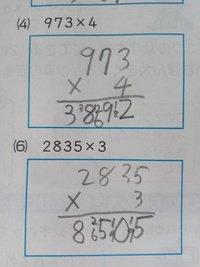 (4) 973×4
973
× 4
3892
(6) 2835×3
2835
× 3
8505